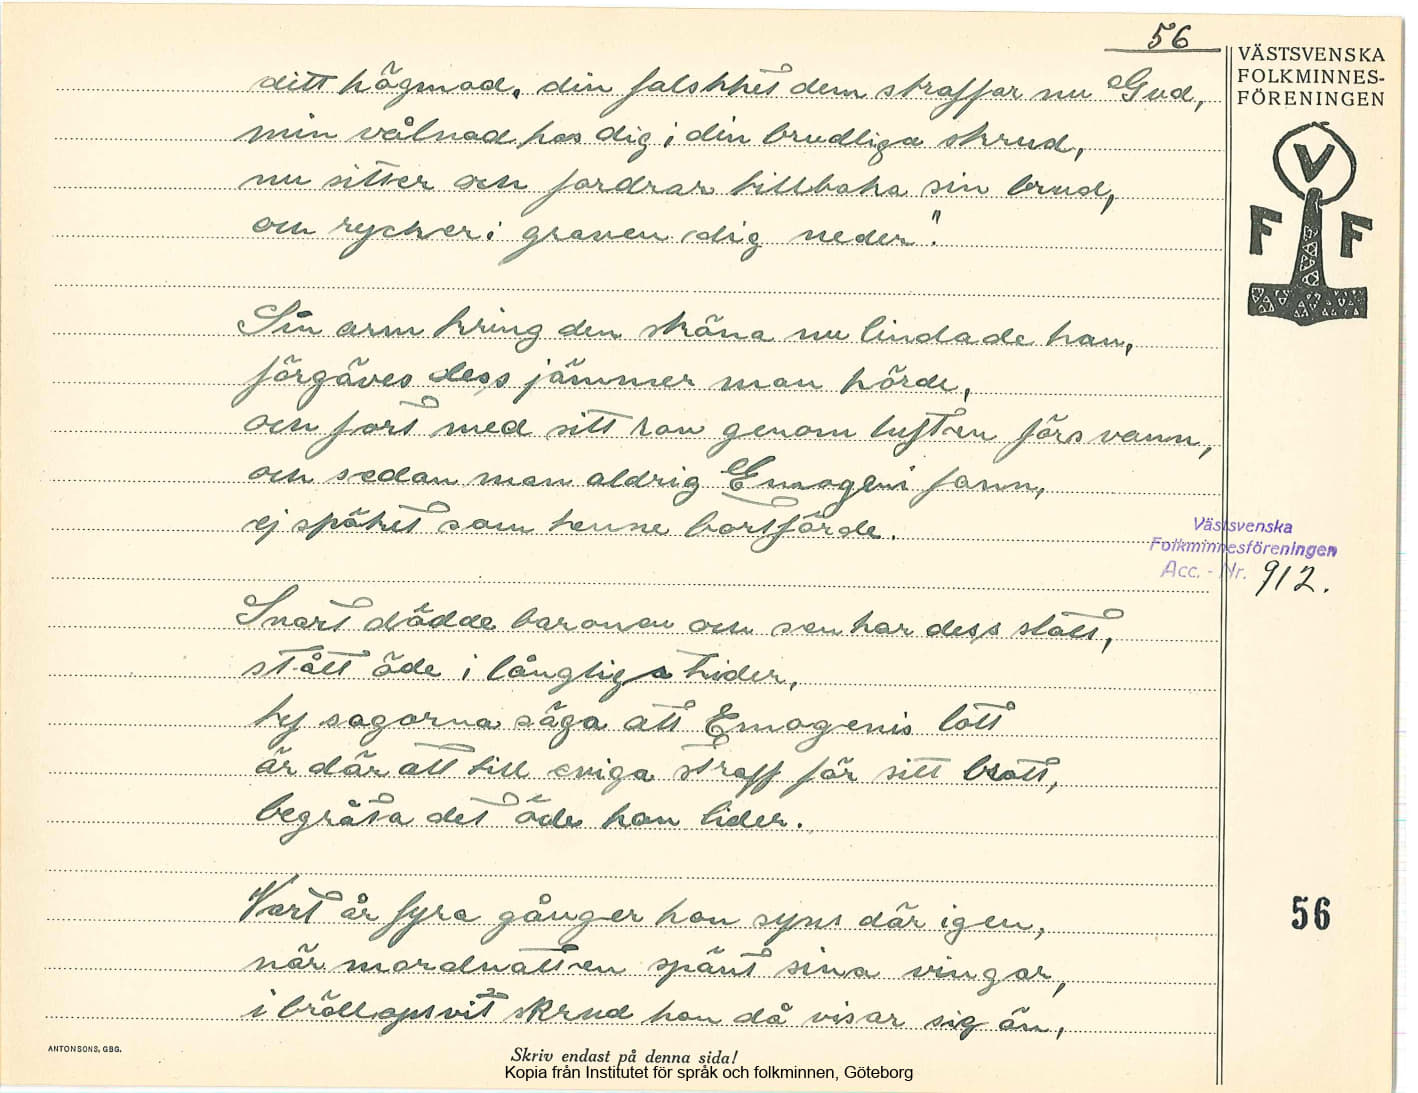 56
VÄSTSVENSKA
FOLKMINNES-
FÖRENINGEN
V
F F
ditt högmod, din falskhet dem straffar nu Gud,
min vålnad hos dig i din brudliga skrud,
nu sitter och fordrar tillbaka sin brud,
och rycker i graven dig neder".
Sin arm kring den sköna nu lindade han,
förgäves dess jämmer man hörde,
och fort med sitt ran genom luften försvann,
och sedan man aldrig Emogeni fann,
ej spöket som henne bortförde.
Västsvenska
Folkminnesföreningen
Acc. - Nr. 912.
Snart dödde baronen och sen har dess slott,
stått öde i långliga tider,
ty sagorna säga att Emogenis lott
är där att till eviga straff för sitt brott,
begråta det öde hon lider.
Vart år fyra gånger hon syns där igen,
när mordnatten spänt sina vingar,
i bröllopsvit skrud hon då visar sig än,
56
ANTONSONS, GBG.
Skriv endast på denna sida!
Kopia från Institutet för språk och folkminnen, Göteborg